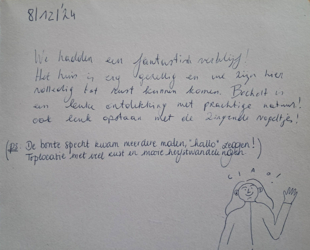 8/12/'24
We hadden een fantastisch verblijf!
Het huis is erg gezellig en we zijn hier
volledig tot rust kunnen komen. Bocholt is
een leuke ontdekking met prachtige natuur!
ook leuk opstaan met de zingende vogeltjes!
De bonte specht kwam meerdere malen "hallo" zeggen!
Toplocatie met veel rust en mooie herfstwandelingen
CIAO!